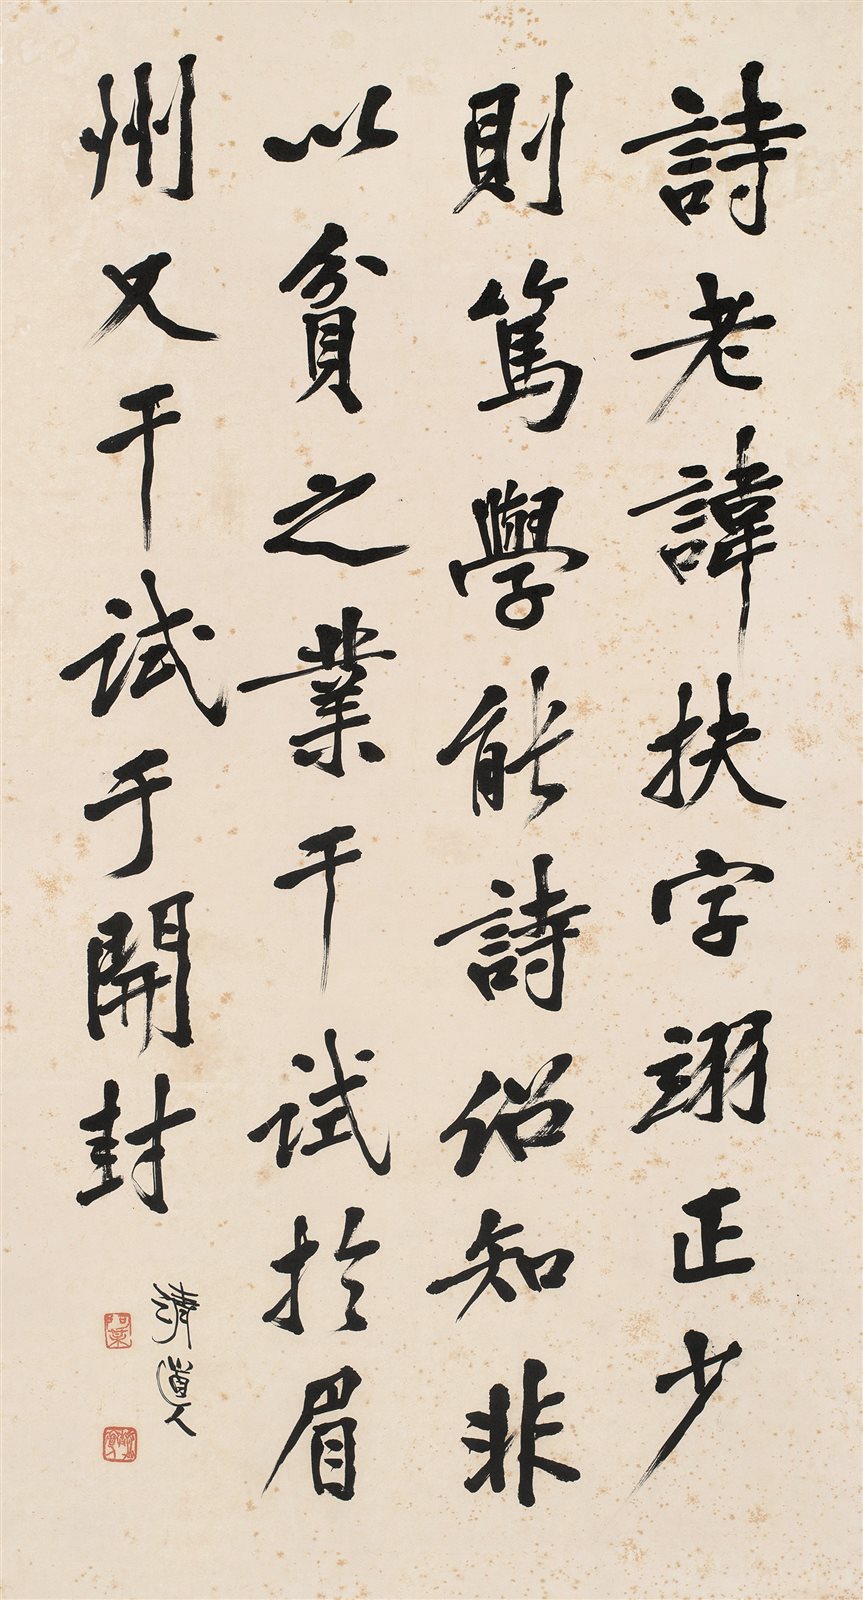 詩老諱扶字翊正少
則篤學能詩俗知非
以貧之業干試於眉
州又干試于開封
清道人